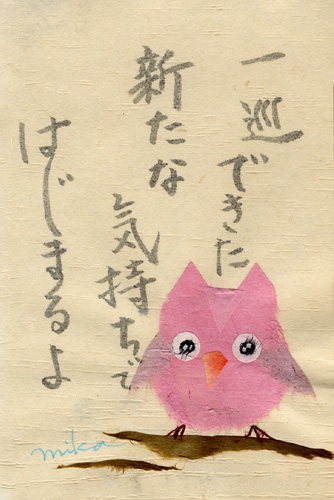 一巡できた
新たな
気持ちで
はじまるよ
mika